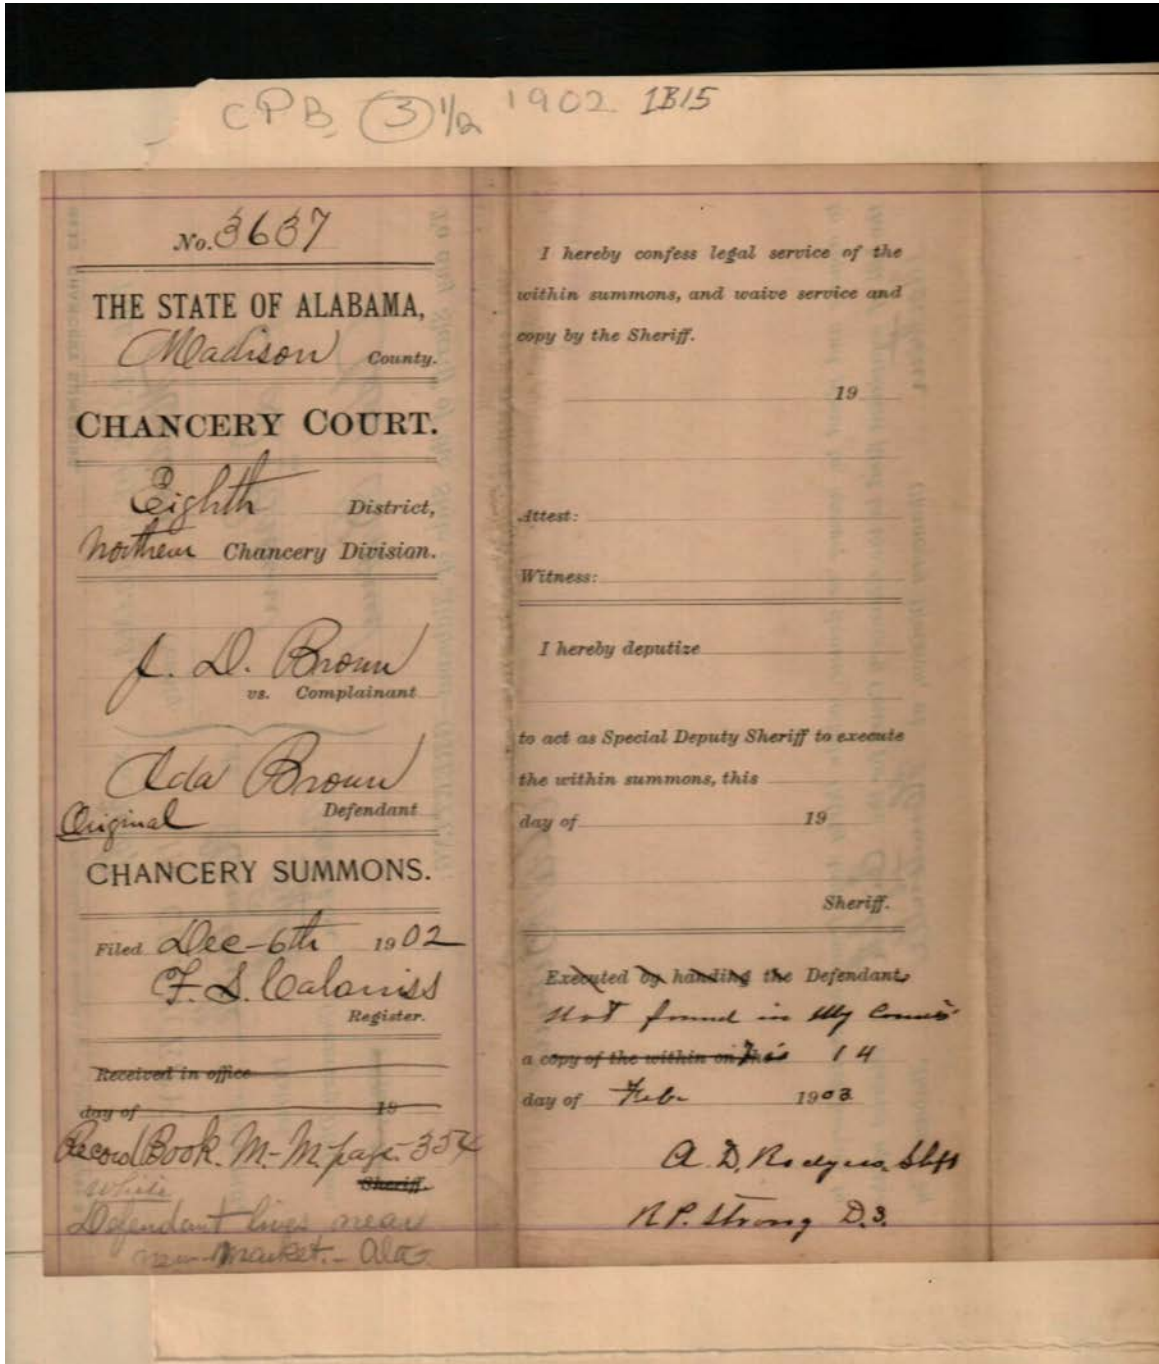 CPB (3) 1/2 1902 1B15
No. 3637
THE STATE OF ALABAMA,
Madison County.
CHANCERY COURT.
Eighth District,
Northern Chancery Division.
J. D. Brown
vs. Complainant
Ada Brown
Original Defendant
CHANCERY SUMMONS.
Filed Dec-6th 1902
F. S. Calaniss
Register.
Received in office
day of 19
Record Book. M-M-page-354
White Sheriff.
Defendant lives near
new-market-Ala-
I hereby confess legal service of the
within summons, and waive service and
copy by the Sheriff.
19
Attest:
Witness:
I hereby deputize
to act as Special Deputy Sheriff to execute
the within summons, this
day of 19
Sheriff.
Executed by handing the Defendant
Not found in My
a copy of the within on this 14
day of Feb 1903
A. D. Rodgers, Shff
R.P. Strong D.S.